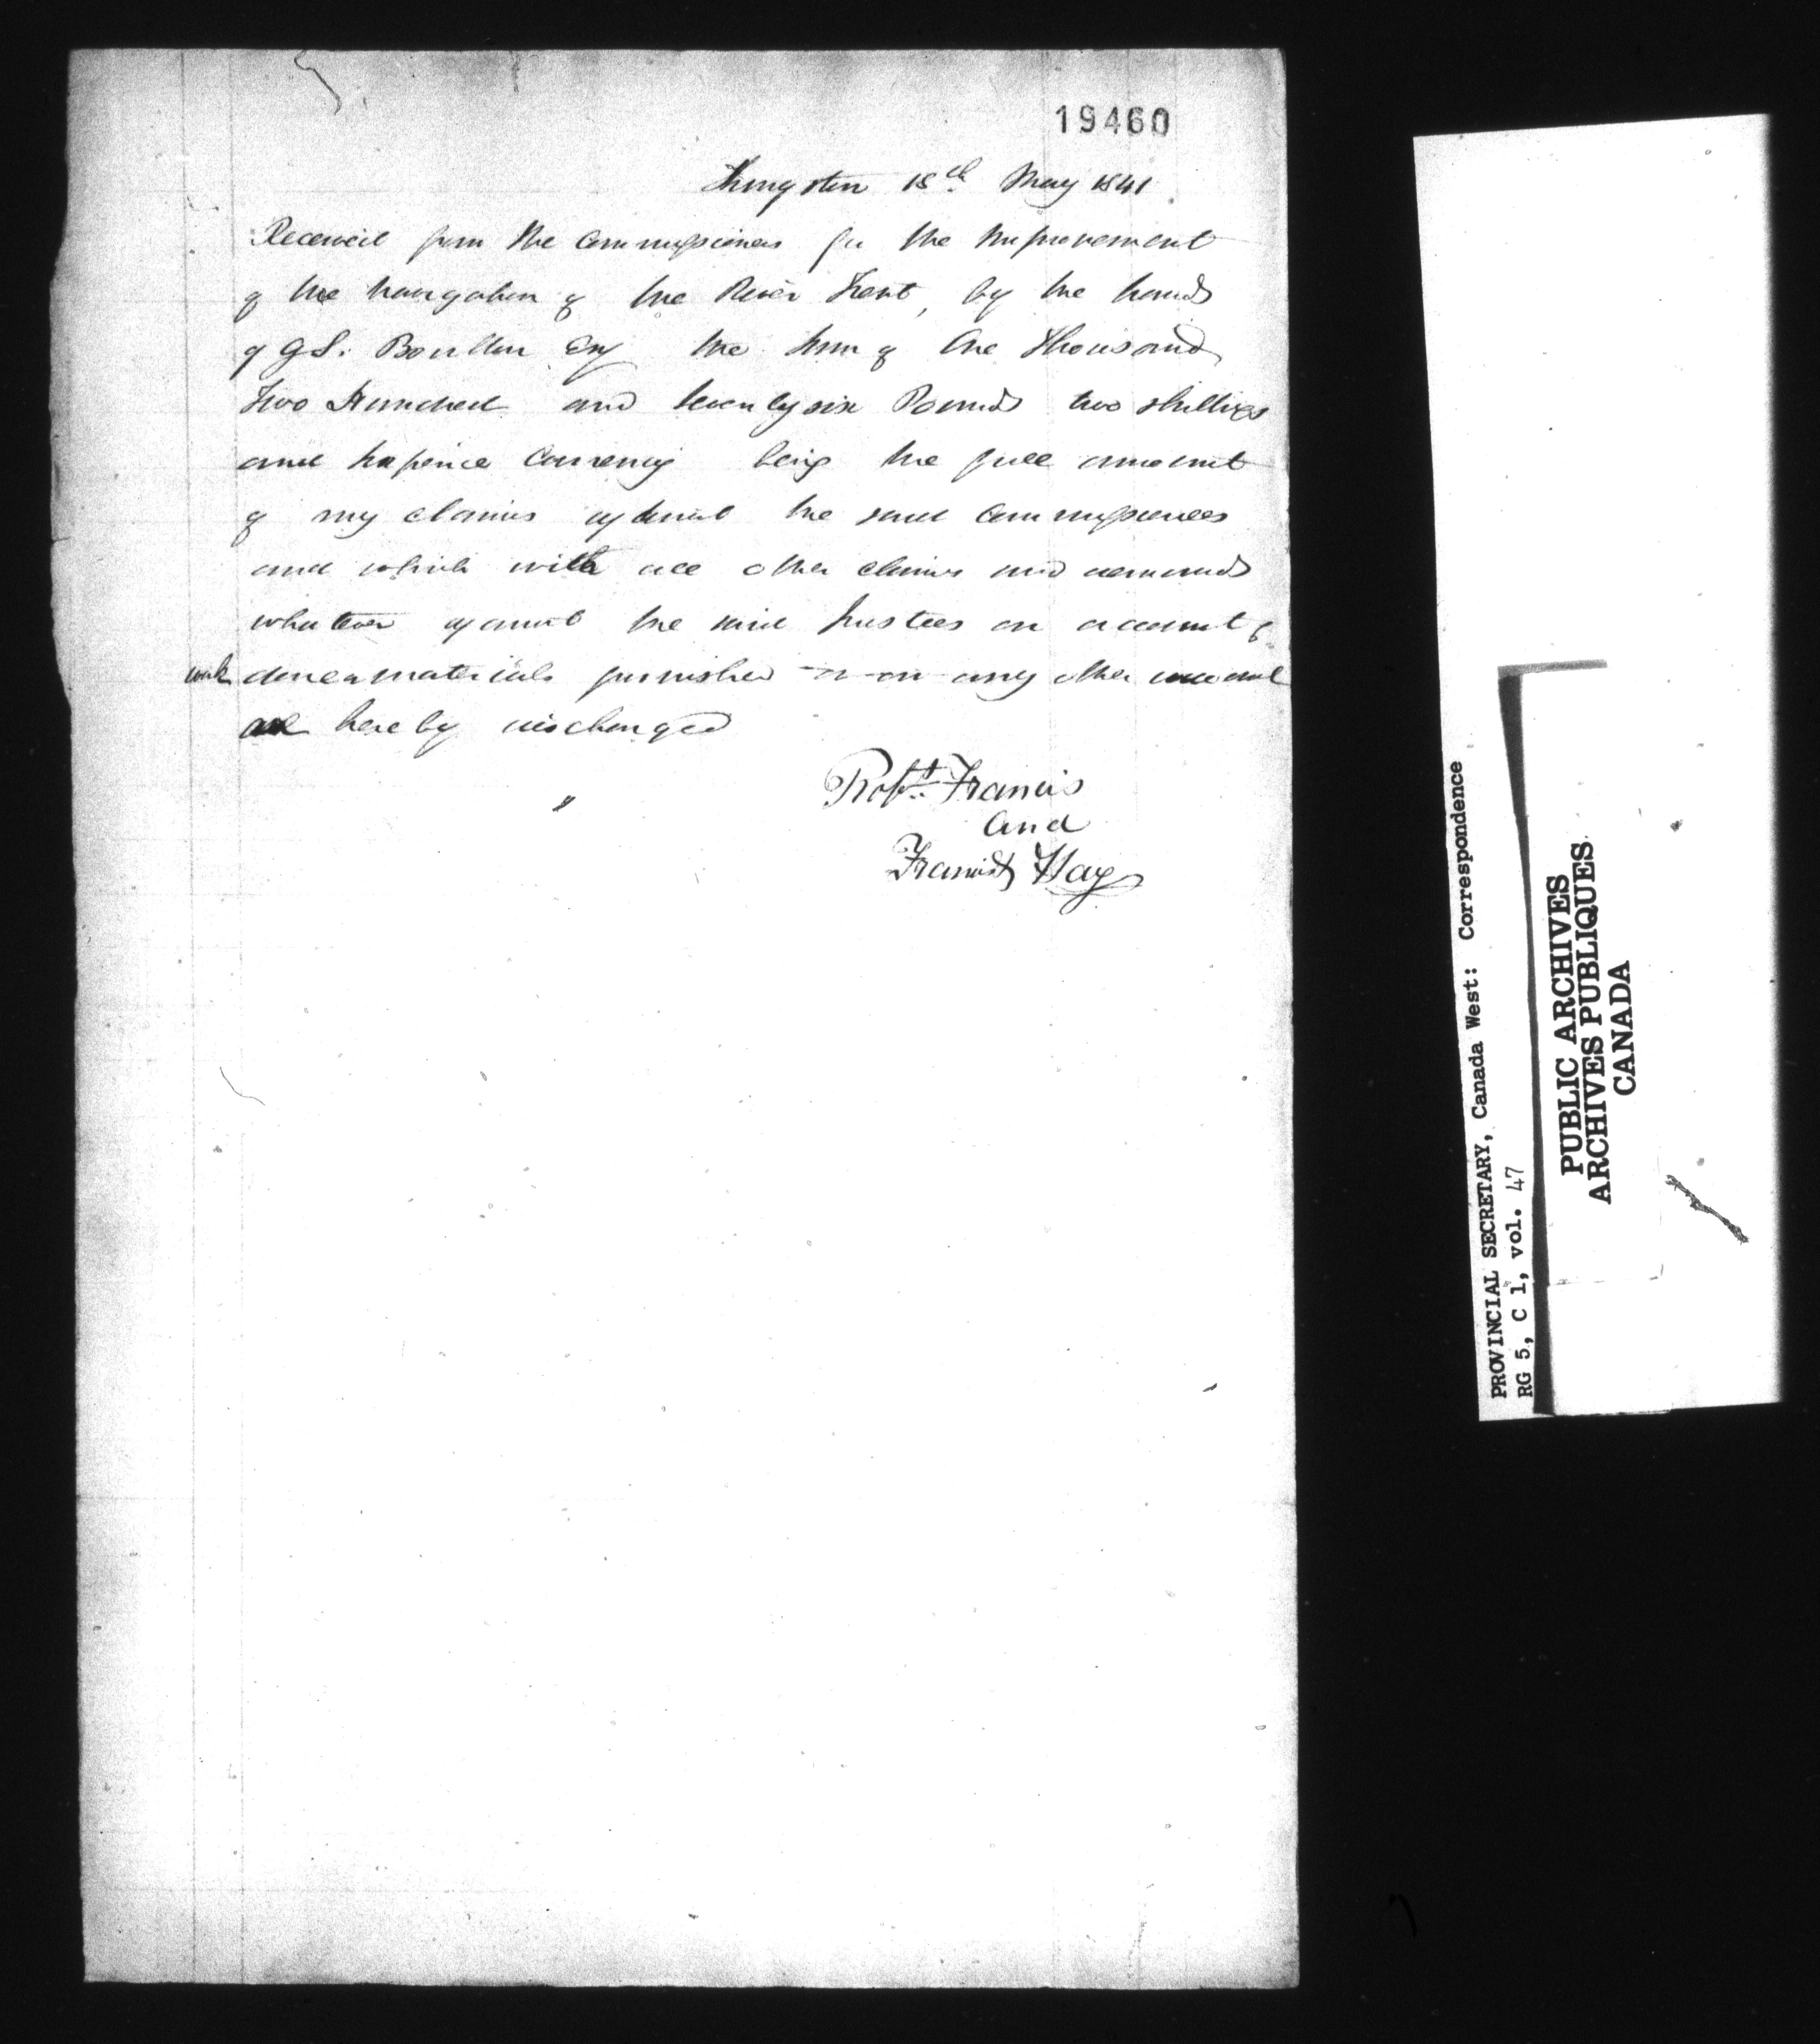 19460
Kingston 18th May 1841
Received from the Commissioners for the Improvement
of the Navigation of the River Trent, by the hands
of G.S. Boulton Esq the Sum of One Thousand
Two Hundred and Seventy six Pounds two shillings
and sixpence Currency being the full amount
of my claims against the said Commissioners
and which with all other claims and demands
whatever against the said trustees on account of
work done or materials furnished or on any other account
are hereby discharged
Robt. Francis
and
Francis Hay
PROVINCIAL SECRETARY, Canada West: Correspondence
RG 5, C 1, vol. 47
PUBLIC ARCHIVES
ARCHIVES PUBLIQUES
CANADA